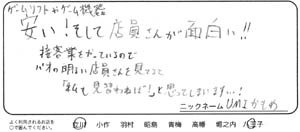 ゲームソフトやゲーム機器
安い!そして店員さんが面白い!!
接客業をやっているので
パオの明るい店員さんを見てると
「私も見習わねば!」と思ってしまいます…!
ニックネーム UMIかもめ
よく利用されるお店を
○で囲んでください。
小作 羽村 昭島 青梅 高幡 堀之内 八王子